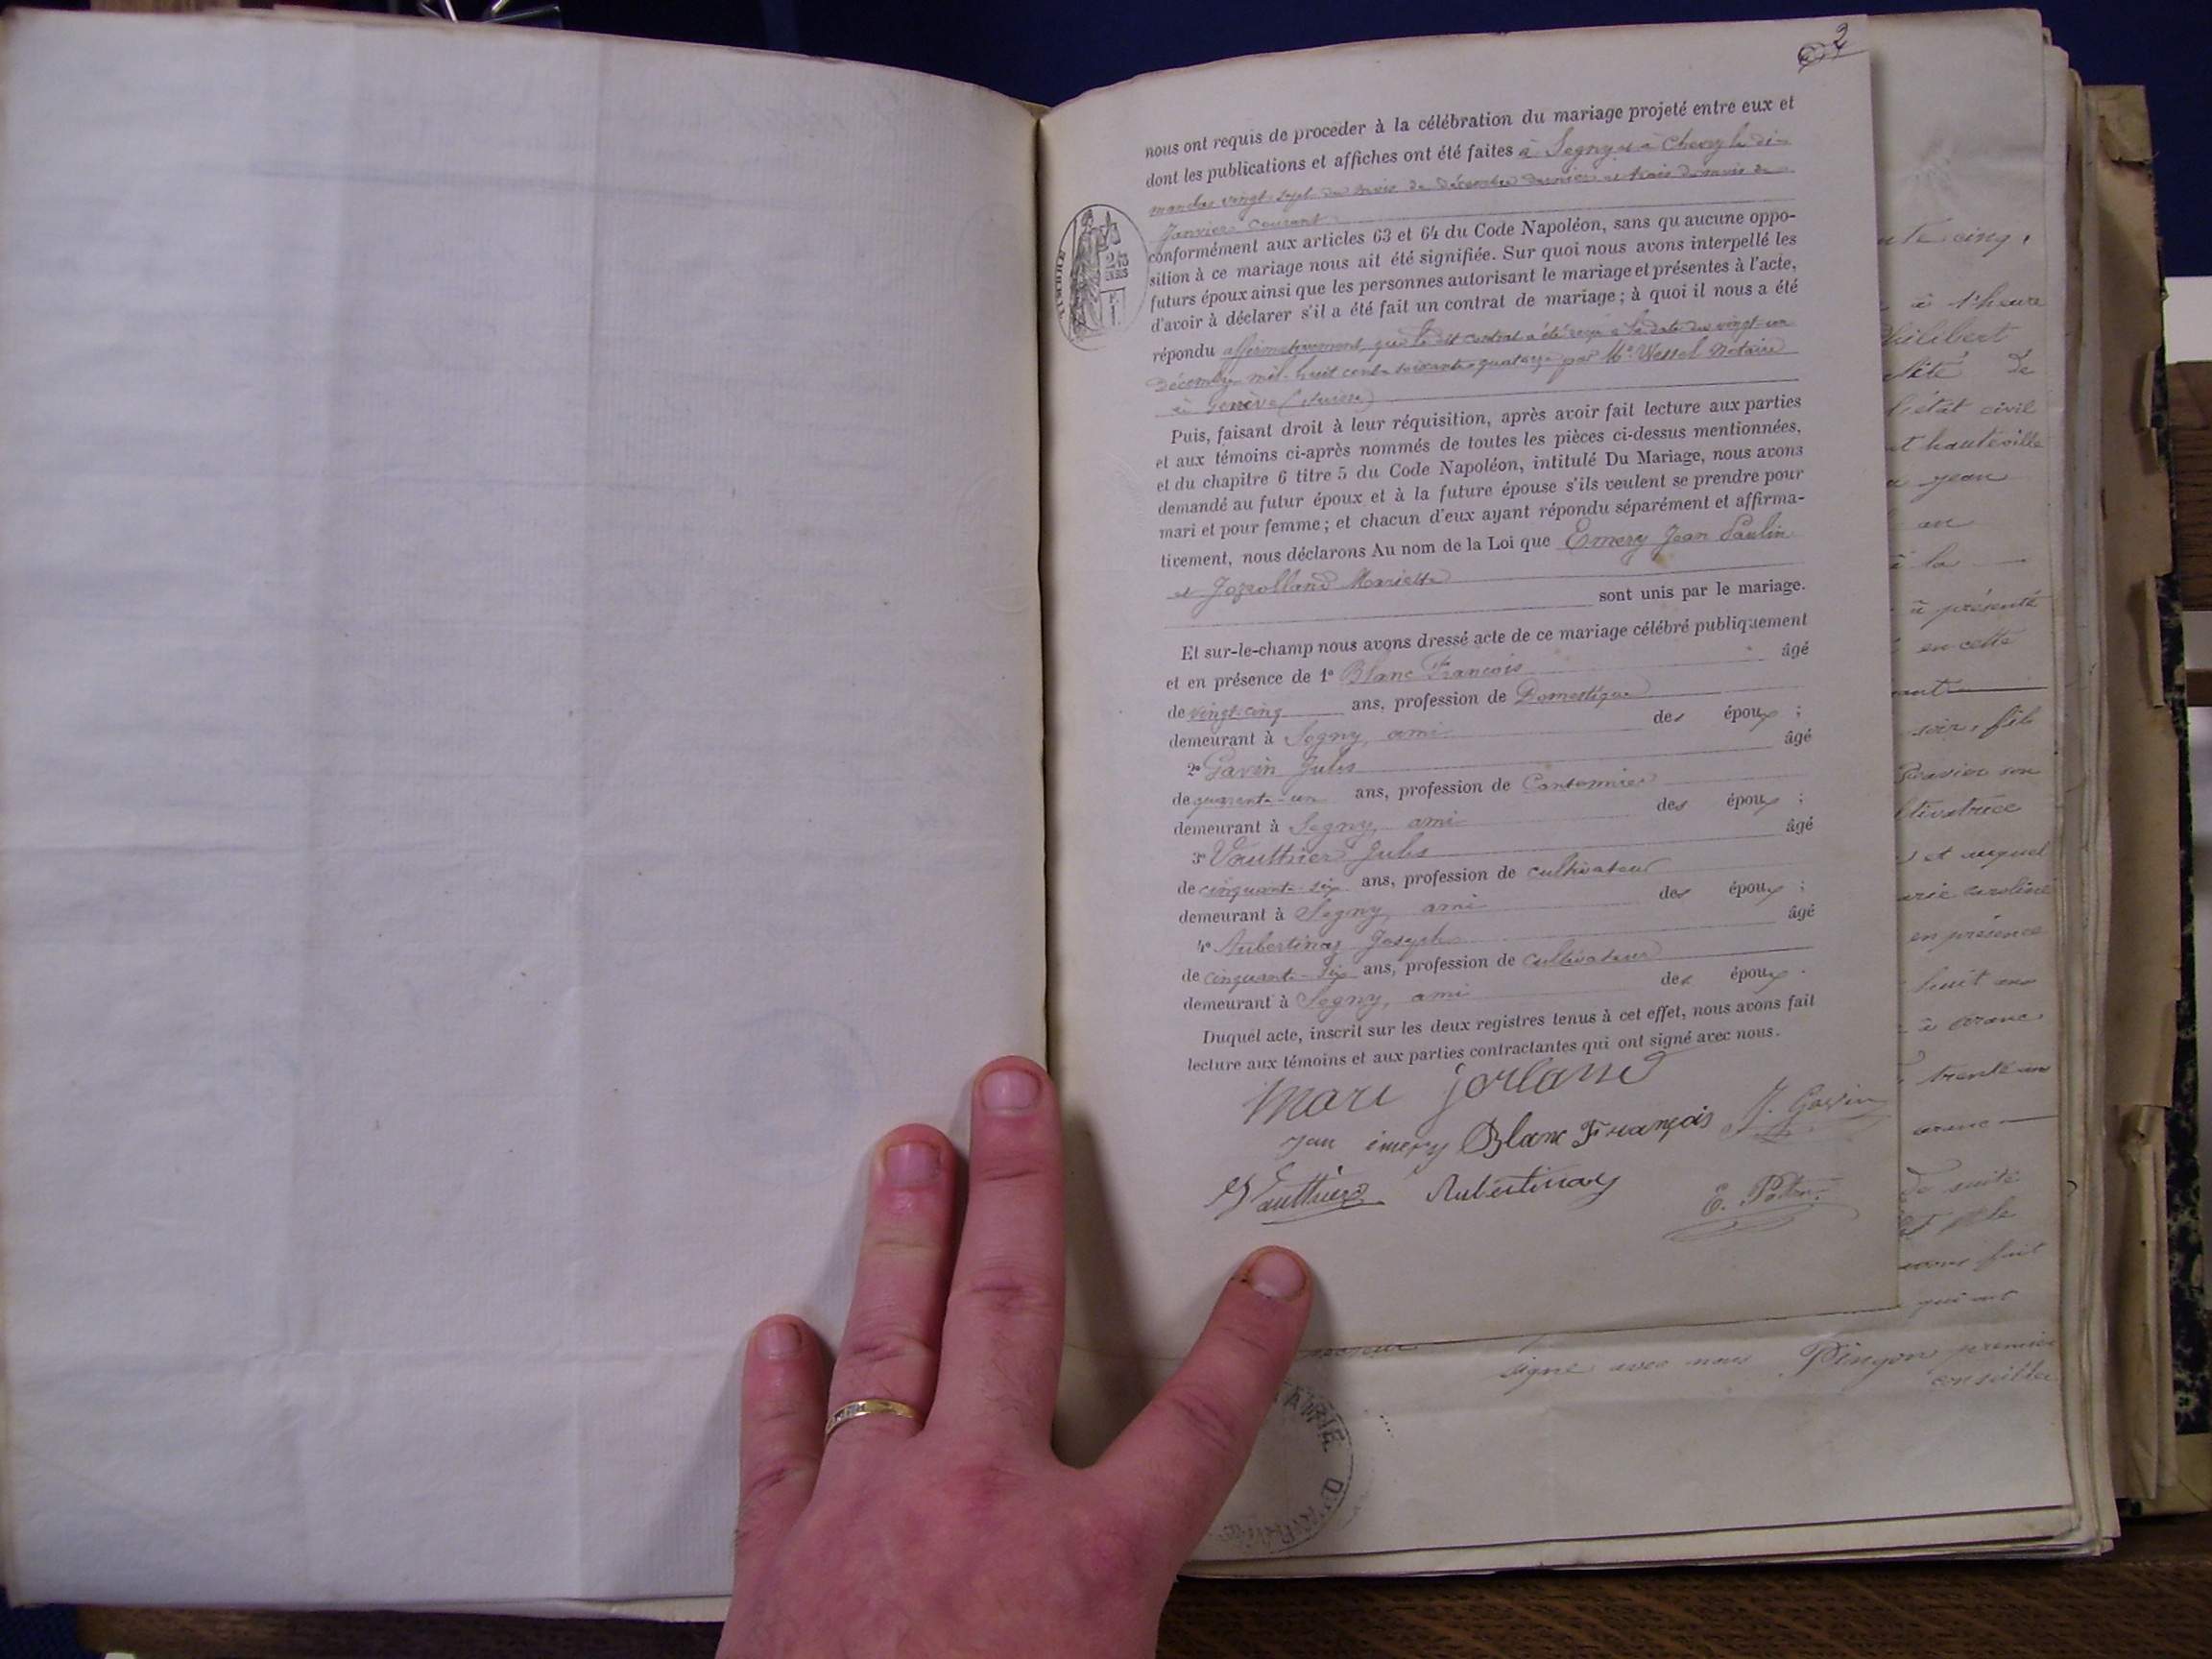 2
nous ont requis de proceder à la célébration du mariage projeté entre eux et
dont les publications et affiches ont été faites à Segny et à Chevry les di-
manches vingt-sept du mois de décembre dernier et trois du mois de
Janvier courant
conformément aux articles 63 et 64 du Code Napoléon, sans qu'aucune oppo-
sition à ce mariage nous ait été signifiée. Sur quoi nous avons interpellé les
futurs époux ainsi que les personnes autorisant le mariage et présentes à l'acte,
d'avoir à déclarer s'il a été fait un contrat de mariage; à quoi il nous a été
répondu affirmativement, que le dit contrat a été reçu à la date du vingt-un
Décembre mil-huit cent-soixante-quatorze par Me Wessel Notaire
à Genève (Suisse)
TIMBRE
Puis, faisant droit à leur réquisition, après avoir fait lecture aux parties
et aux témoins ci-après nommés de toutes les pièces ci-dessus mentionnées,
et du chapitre 6 titre 5 du Code Napoléon, intitulé Du Mariage, nous avons
demandé au futur époux et à la future épouse s'ils veulent se prendre pour
mari et pour femme; et chacun d'eux ayant répondu séparément et affirma-
tivement, nous déclarons Au nom de la Loi que Emery Jean Paulin
et Mariette
sont unis par le mariage.
Et sur-le-champ nous avons dressé acte de ce mariage célébré publiquement
et en présence de 1° Blanc François âgé
de vingt-cinq ans, profession de Domestique
demeurant à Segny, ami des époux ;
2° Gavin Jules âgé
de quarante-un ans, profession de Cantonnier
demeurant à Segny, ami des époux ;
3° Vauthier Jules âgé
de cinquante-six ans, profession de cultivateur
demeurant à Segny, ami des époux ;
4° Aubertinaz Joseph âgé
de cinquante-six ans, profession de cultivateur
demeurant à Segny, ami des époux .
Duquel acte, inscrit sur les deux registres tenus à cet effet, nous avons fait
lecture aux témoins et aux parties contractantes qui ont signé avec nous.
Mari
emery Blanc François J. Gavin
Vauthier Aubertinaz
E.
cinq,
à l'heure
Philibert
de
l'état civil
hauteville
jean
an
à la
à présenté
en cette
soir, fils
son
et auquel
en présence
huit ans
trente un
de suite
le
avons fait
qui ont
signé avec nous Pinçon premier
conseiller